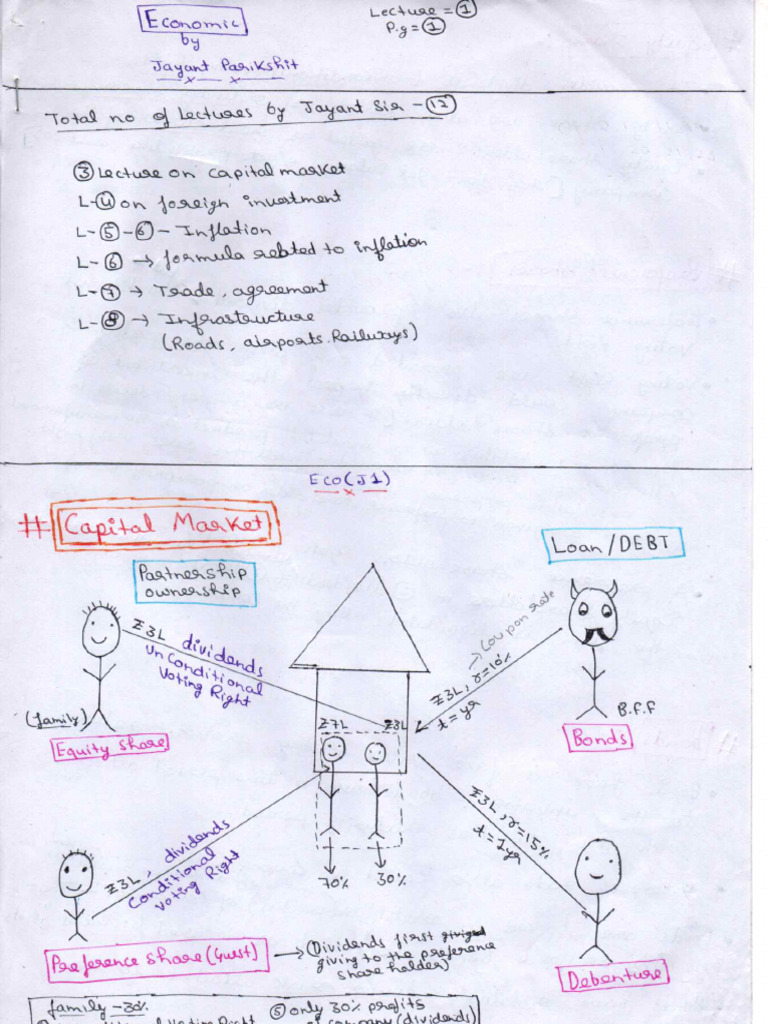 Economic
by
Jayant Parikshit
Lecture = 1
P.g = 1
Total no of Lectures by Jayant Sir - 12
3 Lecture on capital market
L-4 on foreign invustment
L-5-6 - Inflation
L-6 → formula related to inflation
L-7 → Trade, agreement
L-8 → Infrastructure
(Roads, airports. Railways)
Eco(J1)
# Capital Market
Loan/DEBT
Partnership
ownership
₹3L dividends
unconditional
Voting Right
→ Coupon rate
₹3L, r=10%
t = yr
(family)
Equity share
₹7L
₹3L
B.f.f
Bonds
₹3L, dividends
Conditional
Voting Right
70%
30%
₹3L, r=15%
t=1yr
Preference share (Guest)
→ 1 Dividends first
giving to the preference
share holder)
Debenture
family - 30%
5 only 30% profits
of company (dividends)
Voting Right